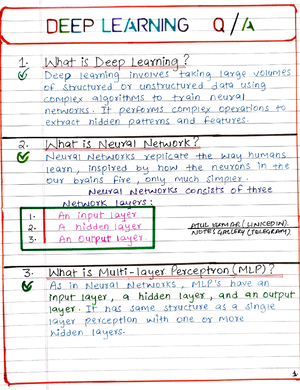 DEEP LEARNING Q/A
1. What is Deep Learning?
Deep learning involves taking large volumes
of structured or unstructured data using
complex algorithms to train neural
networks. It performs complex operations to
extract hidden patterns and features.
2. What is Neural Network?
Neural Networks replicate the way humans
learn, inspired by how the neurons in the
our brains fire, only much simpler.
Neural Networks consists of three
Network layers:
1. An input layer
2. A hidden layer
3. An output layer
ATUL KUMAR (LINKEDIN).
NOTES GALLERY (TELEGRAM)
3. What is Multi-layer Perceptron (MLP)?
As in Neural Networks, MLP's have an
input layer, a hidden layer, and an output
layer. It has same structure as a single
layer perceptron with one or more
hidden layers.
1